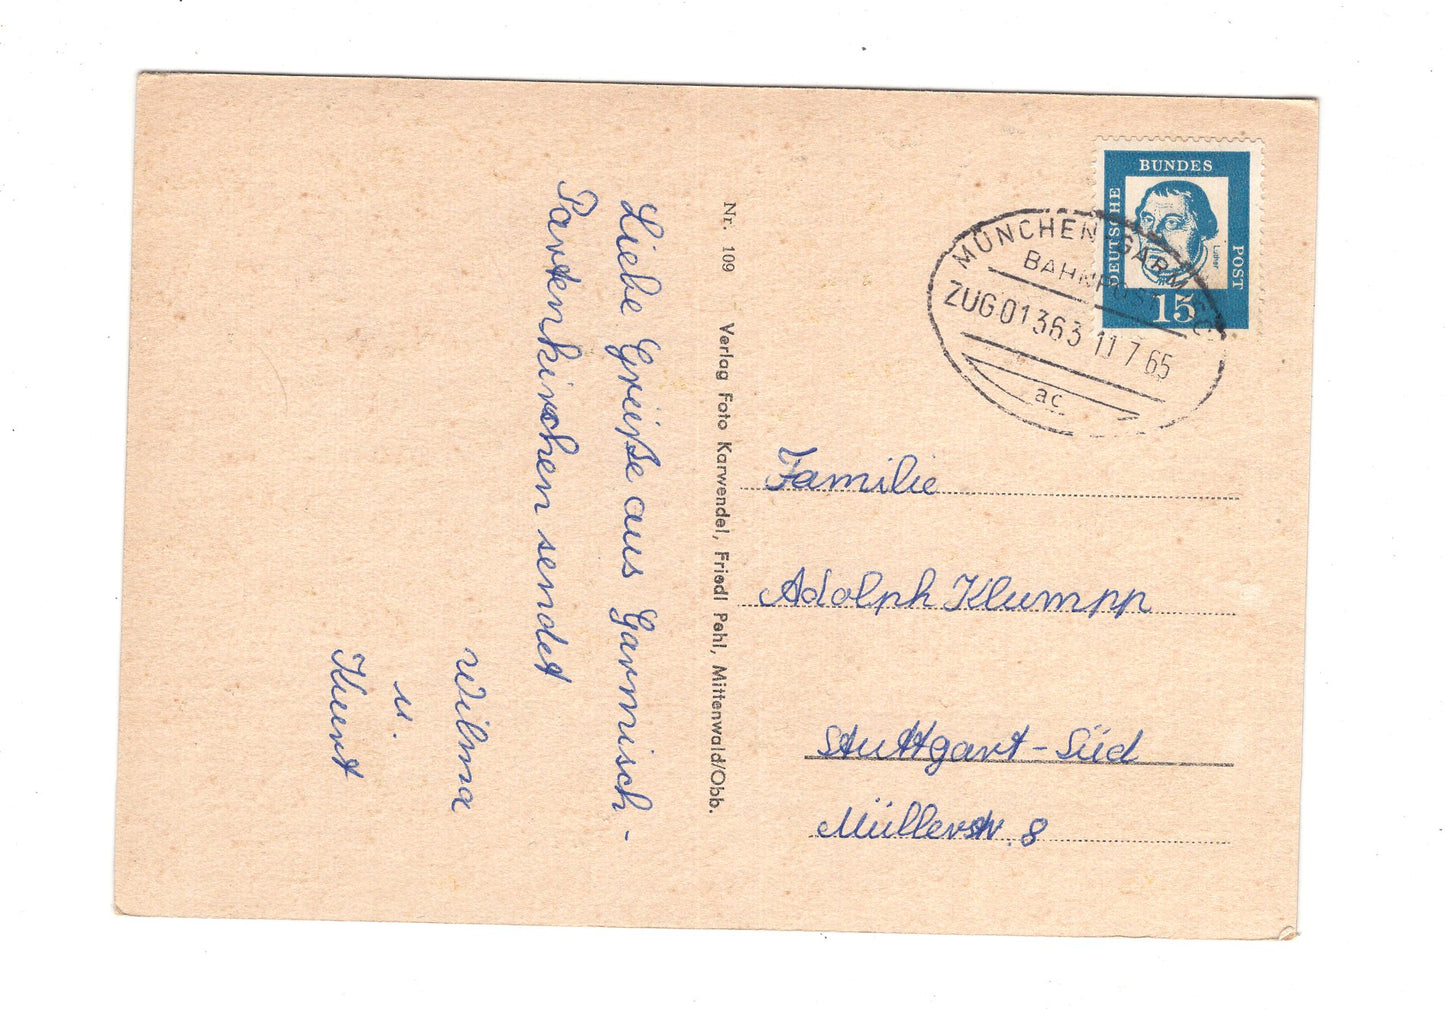 Liebe Grüße aus Garmisch-
Partenkirchen sendet
Wilma
u.
Kurt
Nr. 109 Verlag Foto Karwendel, Friedl Pehl, Mittenwald/Obb.
DEUTSCHE
BUNDES
POST
Luther
15
MÜNCHEN GARMISC
BAHNPOST
ZUG 01363 11 7 65
ac
Familie
Adolph Klumpp
Stuttgart-Süd
Müllerstr. 8